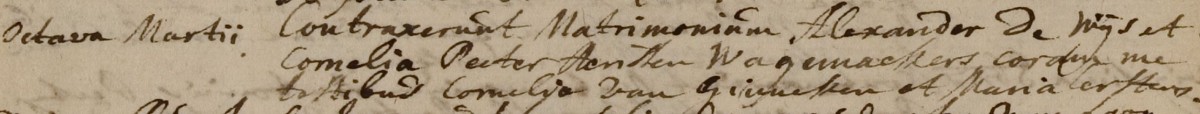 Octava Martii Contraxerunt Matrimonium Alexander De Wijs et
Cornelia Peeter Hendken Wagemaekers coram me
testibus Cornelio van Ginneken et Maria Kerstens.